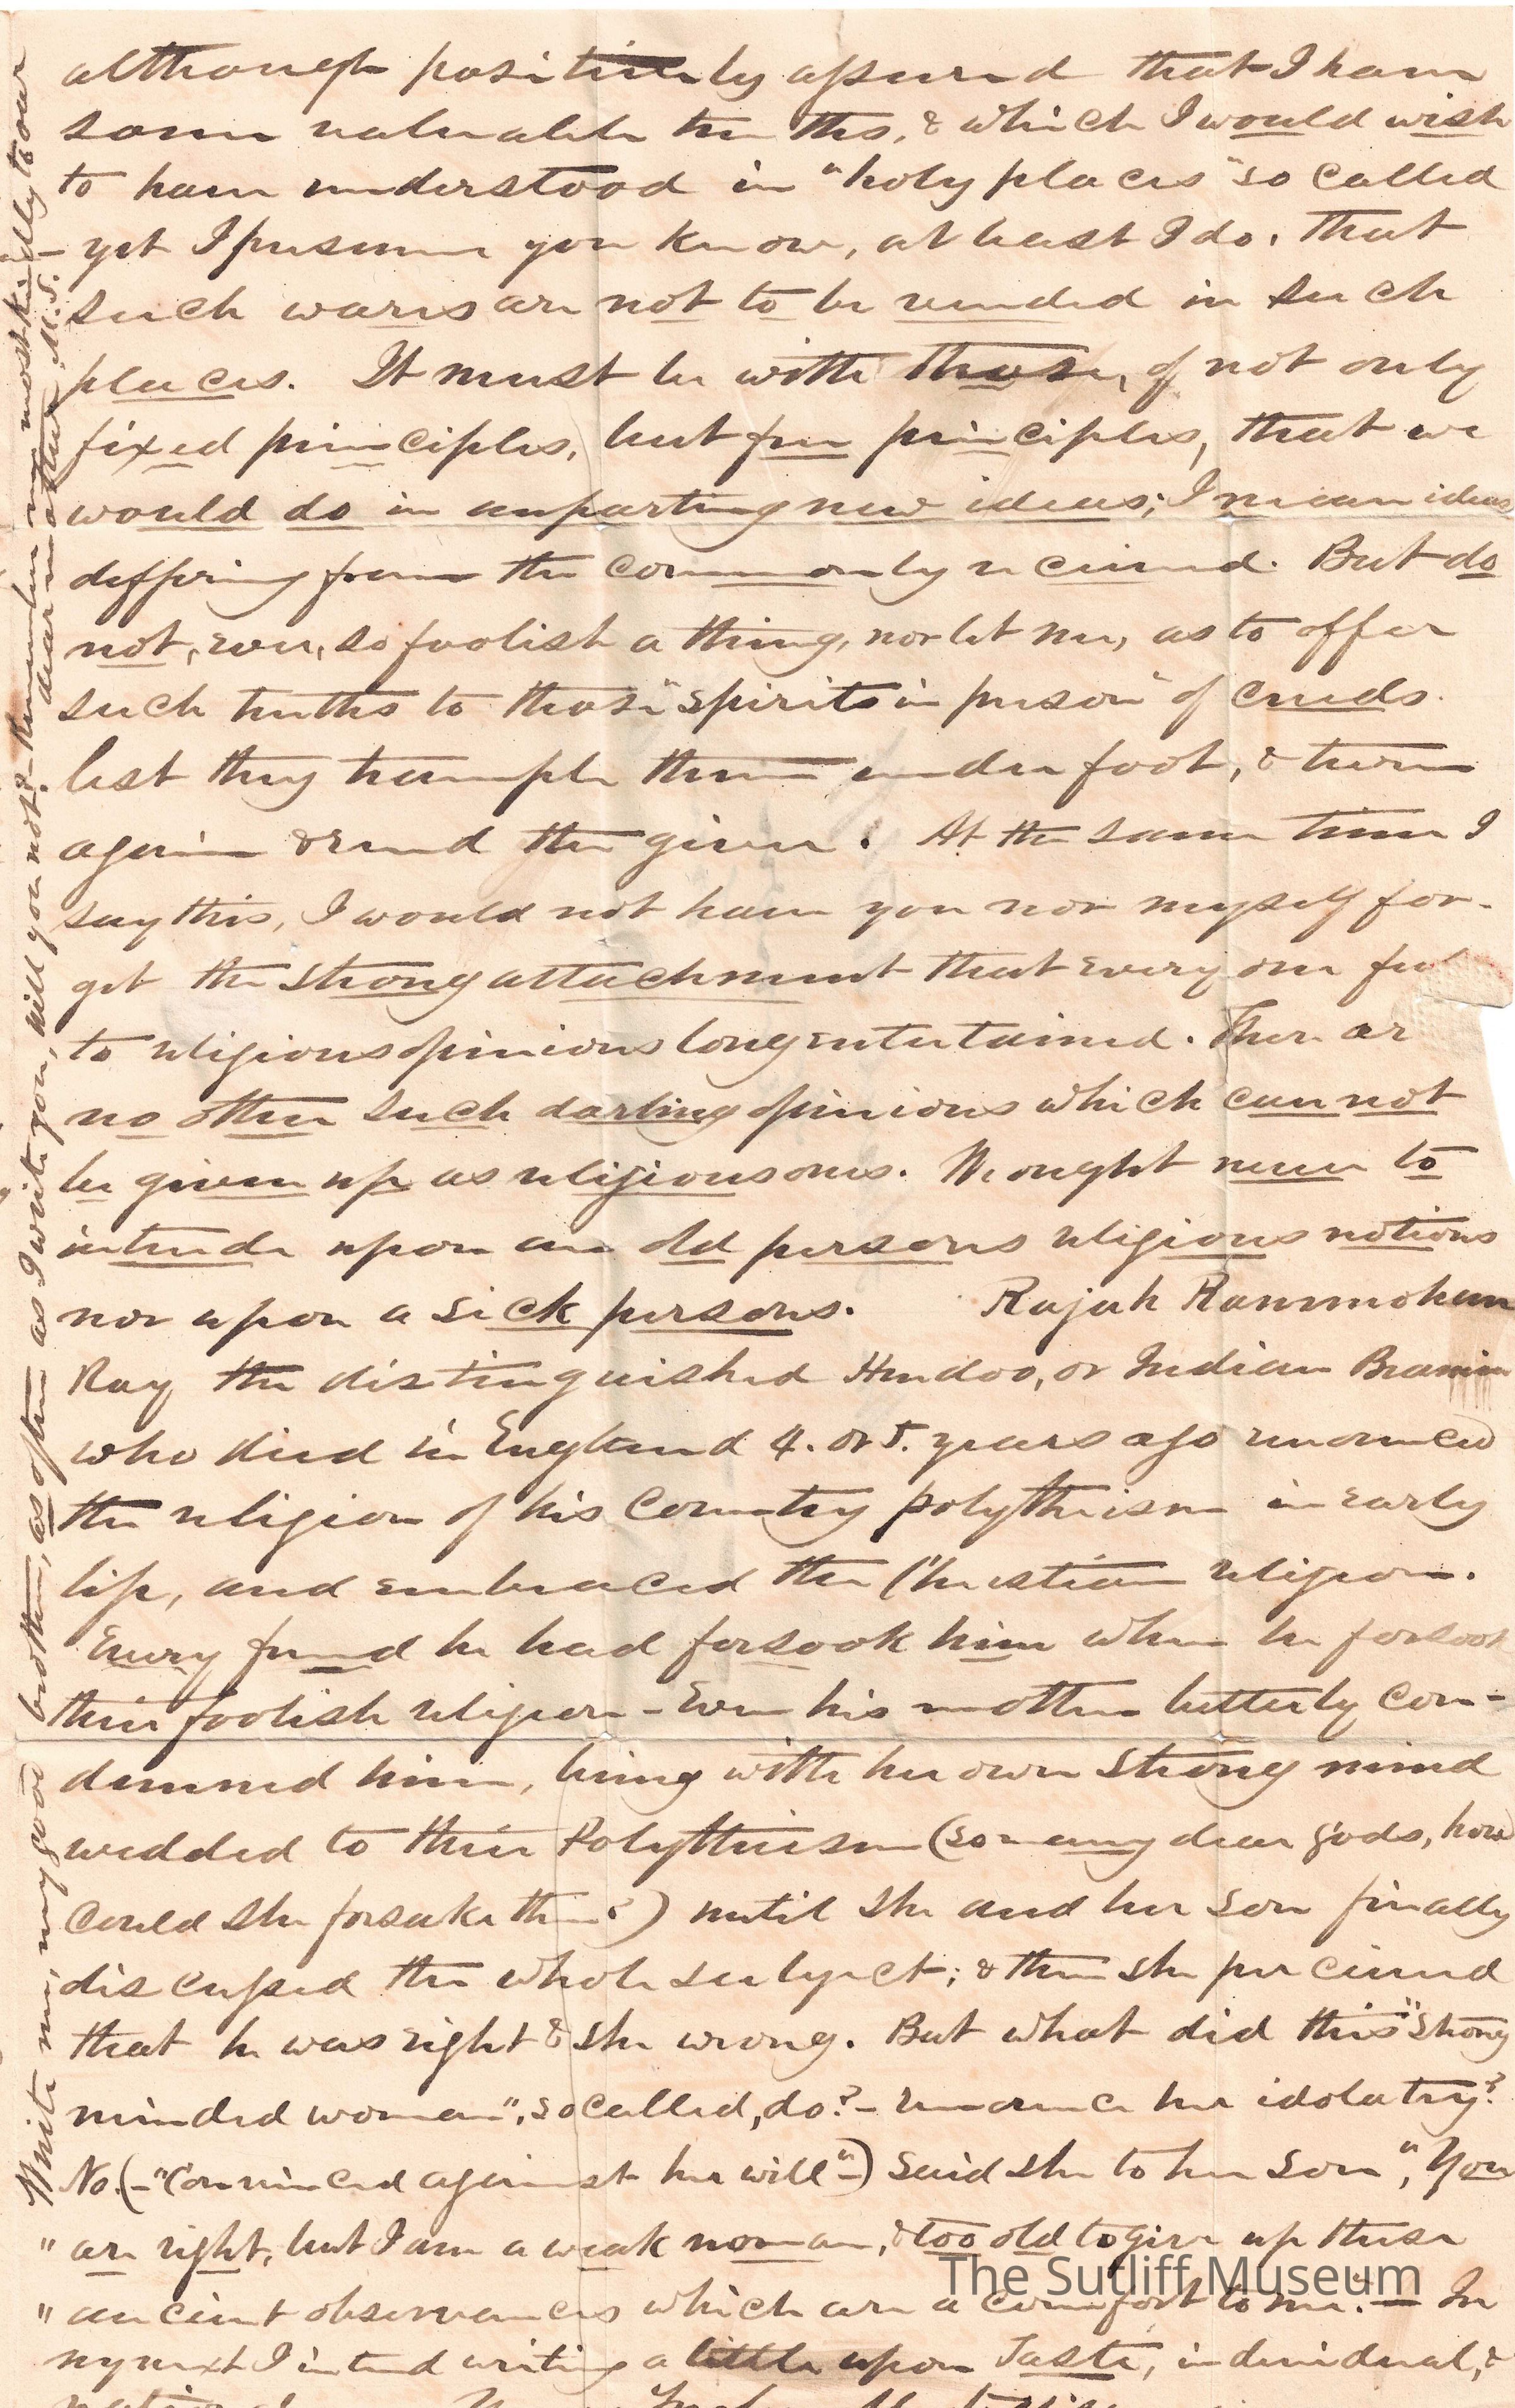 although positively assured that I have
some valuable truths, & which I would wish
to have understood in "holy places" so called
yet I presume you know, at least I do, that
such wares are not to be vended in such
places. It must be with those, of not only
fixed principles, but free principles, that we
would do in imparting new ideas; I mean ideas
differing from the commonly received. But do
not, ever, so foolish a thing, nor let me, as to offer
such truths to those "spirits in prison" of creeds.
lest they trample them under foot, & turn
again & rend the giver. At the same time I
say this, I would not have you nor myself for-
get the strong attachment that every one
to religious opinions long entertained. There are
no other such darling opinions which can not
be given up as religious ones. We ought never to
intrude upon an old persons religious notions
nor upon a sick persons. Rajah Rammohun
Roy the distinguished Hindoo, or Indian Bramin
who died in England 4. or 5. years ago renounced
the religion of his Country polytheism in early
life, and embraced the Christian religion.
Every friend he had forsook him when he forsook
their foolish religion - Even his mother bitterly con-
demned him, being with her own strong mind
wedded to their Polytheism (so many dear gods, how
could she forsake them?) until she and her son finally
discussed the whole subject; & then she perceived
that he was right & she wrong. But what did this "strong
minded woman", so called, do? - renounce her idolatry?
No. (- "Convinced against her will" -) Said she to her son, "You
" are right, but I am a weak woman, & too old to give up these
" ancient observances which are a comfort to me." — In
my next I intend writing a little upon Taste, individual, &
Write me, my good brother, as often as I write you, will you not? - Remember me most kindly to our
dear mother. M.S. -
The Sutliff Museum